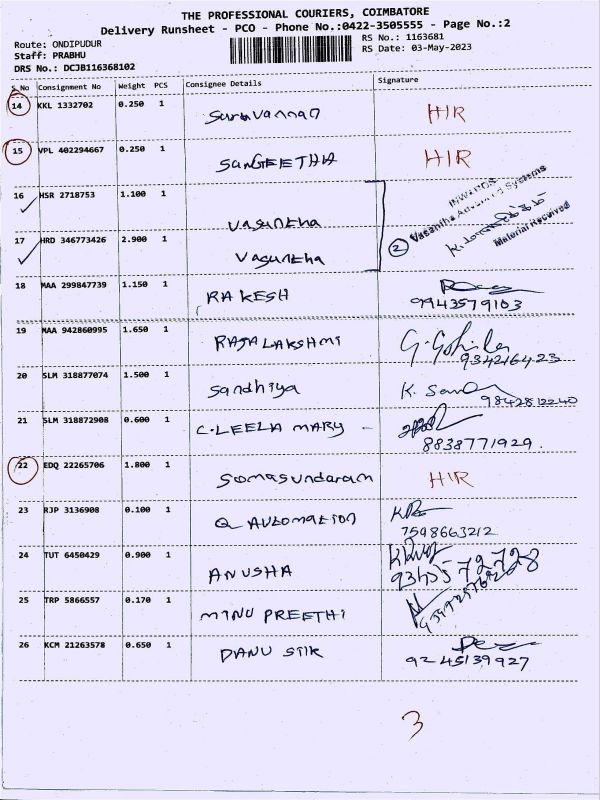 THE PROFESSIONAL COURIERS, COIMBATORE
Delivery Runsheet - PCO - Phone No.:0422-3505555 - Page No.:2
Route: ONDIPUDUR RS No.: 1163681
Staff: PRABHU RS Date: 03-May-2023
DRS No.: DCJB116368102
S.No Consignment No Weight PCS Consignee Details Signature
14 KKL 1332702 0.250 1 Saravannan HIR
15 VPL 402294667 0.250 1 SANGEETHA HIR
16 HSR 2718753 1.100 1 Vasuntha
INWARDS
Vasantha Advanced Systems
Material Received
17 HRD 346773426 2.900 1 Vasuntha 2
18 MAA 299847739 1.150 1 RAKESH
9943579103
19 MAA 942860995 1.650 1 RAJALAKSHMI
934216423
20 SLM 318877074 1.500 1 Sandhiya
9842812240
21 SLM 318872908 0.600 1 C.LEELA MARY -
8838771929.
22 EDQ 22265706 1.800 1 Somasundaram HIR
23 RJP 3136908 0.100 1 Q AUTOMATION
7598663212
24 TUT 6450429 0.900 1 ANUSHA
25 TRP 5866557 0.170 1 MINU PREETHI
26 KCM 21263578 0.650 1 DANU Silk
9245139927
3